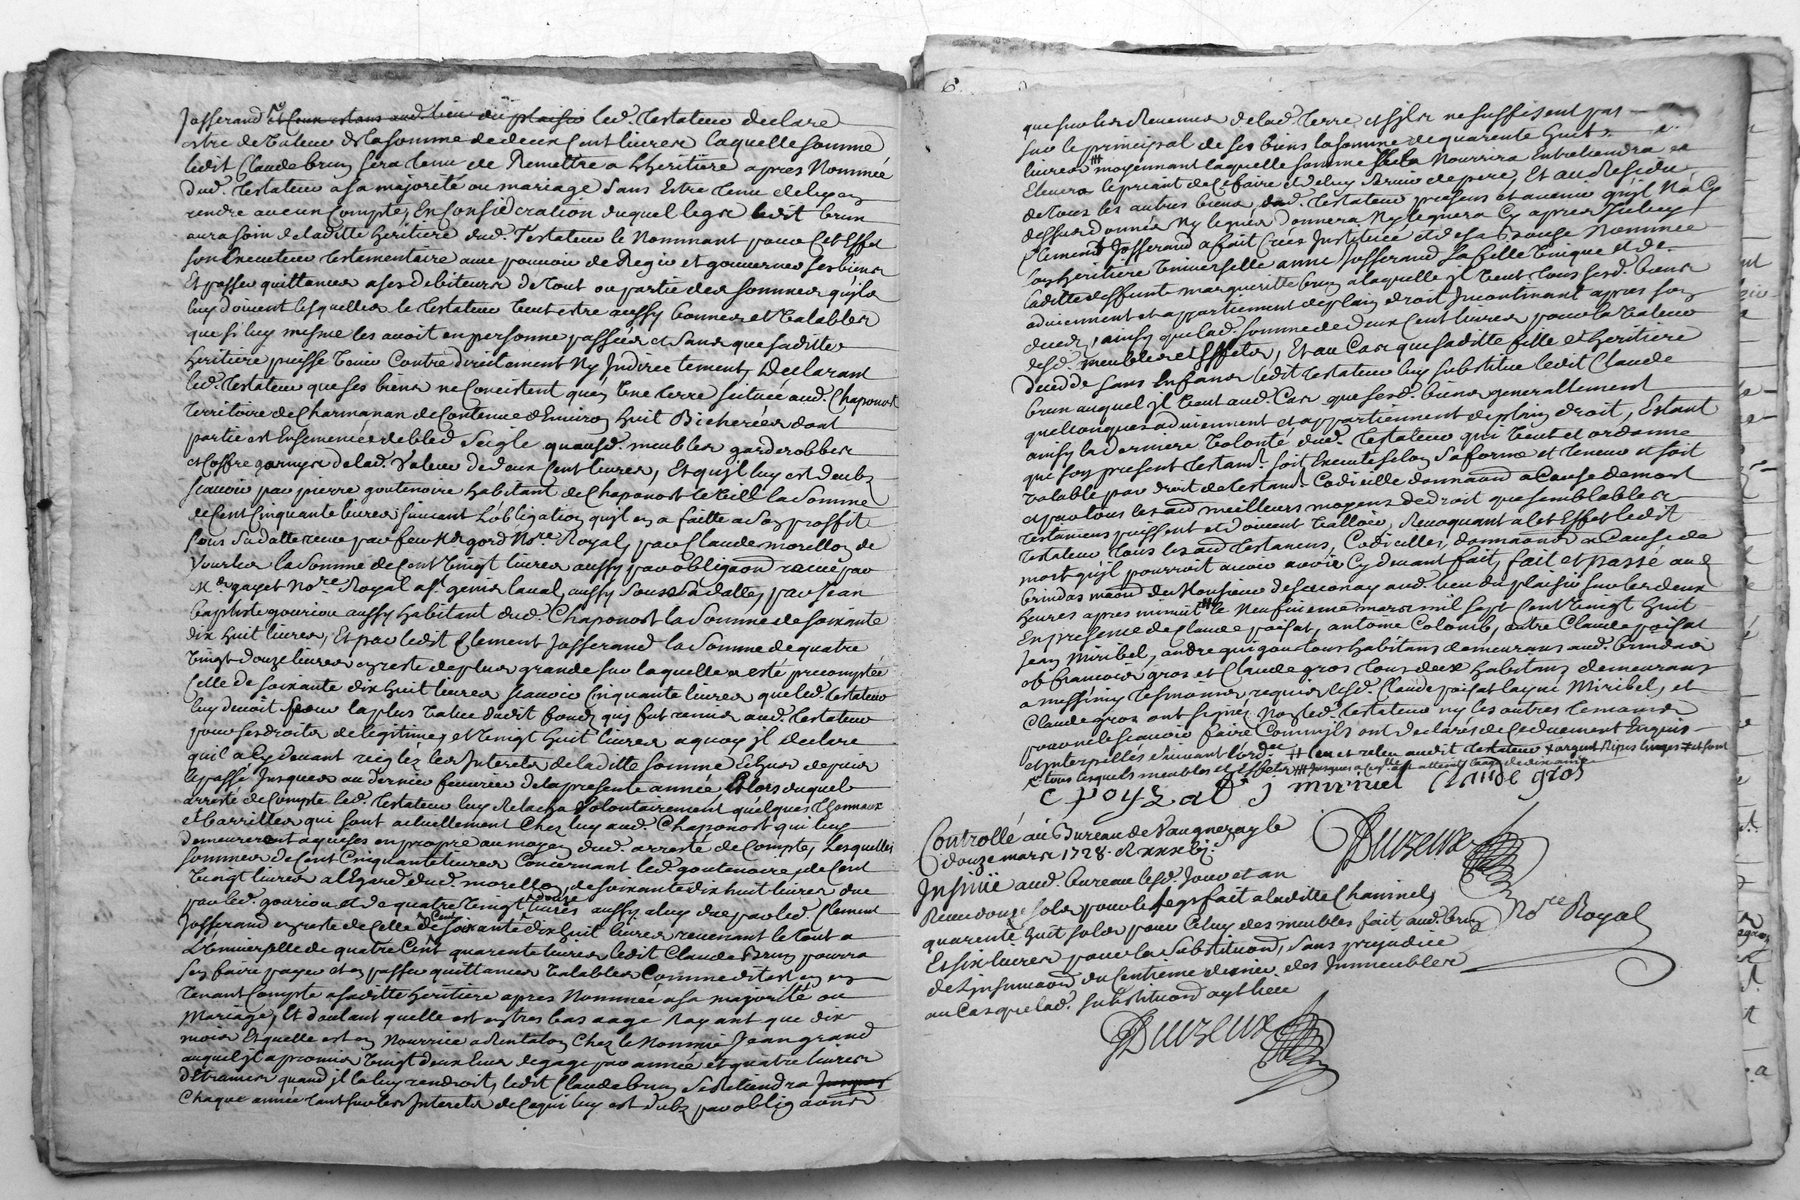 Josserand et Comm estans aud. lieu du plaisir led. Testateur declare
estre de valeur de la somme de deux Cent livres laquelle somme
ledit Claude brun sera tenu de Remettre a L'heritiere apres Nommée
dud. Testateur a sa majorité ou mariage sans Estre tenu de luy en
rendre aucun Compte, En Consideration duquel legs ledit brun
aura soin de laditte heritiere dud. Testateur le Nommant pour Cet Effet
son Executeur Testamentaire avec pouvoir de Regir et gouverner ses biens
Et passer quittances a ses debiteurs de tout ou partie des sommes qu'ils
luy doivent lesquelles le Testateur veut estre aussy bonnes et valables
que si luy mesme les avoit en personne passées et sans que saditte
Heritiere puisse venir Contre directement Ny Indirectement, Declarant
led. Testateur que ses biens ne Consistent qu'en Une terre scituée aud. Chaponost
territoire de Charmanan de Contenue d'Environ huit Bicherées dont
partie est Ensemencée de bled Seigle quausd. meubles garderobbes
et Coffre garnys de lad. Valeur de deux Cent livres, Et qu'il luy est deub
scavoir par pierre goutenoire habitant de Chaponost le Viell la somme
de Cent Cinquante livres suivant L'obligation qu'il en a faitte a son proffit
sous sa datte receue par feu Me gord Nore Royal, par Claude morellon de
Vourles la somme de Cent vingt livres aussy par obligaon receue par
Me gayet Nore Royal a St genis laval, aussy sous sa datte, par Jean
baptiste gourion aussy habitant dud. Chaponost la somme de soixante
dix huit livres, Et par ledit Clement Josserand la somme de quatre
vingt douze livres en reste de plus grande sur laquelle a esté precomptée
Celle de soixante dix huit livres scavoir Cinquante livres que led. testateur
luy devoit pour la plus value dudit fonds qui fut remis aud. Testateur
pour ses droits de legitime, et vingt huit livres a quoy il declare
qu'il a Cy devant reiglez les Interets de laditte somme Echeus depuis
le passé Jusques au dernier fevrier de la presente année lors duquel
arresté de Compte led. Testateur luy Relacha Volontairement quelques Thonnaux
et barrilles qui sont actuellement Chez luy aud. Chaponost qui luy
demeureront acquises en propre au moyen dud. arresté de Compte, Lesquelles
sommes de Cent Cinquante livres Concernant led. goutenoire, de Cent
vingt livres a l'Egard dud. morellon, de soixante dix huit livres due
par led. gourion et de quatre vingt douze livres aussy a luy due par led. Clement
Josserand en reste de Celle de Cent soixante dix huit livres revenant le tout a
Lenviersselle de quatre Cent quarente livres ledit Claude Brun pourra
sen faire payer et en passer quittances valables Comme dit est en en
tenant Compte a saditte heritiere apres Nommée a sa majorité ou
Mariage, Et d'autant quelle est en tres bas aage Nayant que dix
mois Et quelle est en Nourrice a Rontalon Chez le Nommé Jean grand
auquel il a promis vingt deux livres de gage par année et quatre livres
d'Etraines quand il la luy rendroit, ledit Claude brun se Retiendra Jusques
Chaque année tant sur les Interets de Ce qui luy est deub par obligaons
6
que sur les Revenus de lad. Terre et s'ils ne suffisent pas
sur le principal de ses biens la somme de quarente huit
livres moyennant laquelle somme il la Nourrira Entretiendra et
Elevera le priant de Ce faire et de luy servir de pere, Et au Residu
de tous les autres biens dud. Testateur presens et avenir qu'il Na Cy
dessus donnés Ny legués donnera Ny leguera Cy apres Iceluy
Clement Josserand a fait Crée Institué et de sa bouche Nommée
son heritiere Universelle anne Josserand sa fille Unique et de
laditte deffunte marguerite brun a laquelle il veut tous sesd. biens
adviennent et appartiennent de plain droit Incontinant apres son
deceds, ainsy que lad. somme de deux Cent livres pour la valeur
desd. meubles et Effets, Et au Cas que saditte fille et heritiere
decede sans Enfans ledit Testateur luy substitue ledit Claude
brun auquel il veut aud. Cas que sesd. biens generallement
quelconques adviennent et appartiennent de plain droit, Estant
ainsy la derniere volonté dud. Testateur qui veut et ordonne
que son present Testamt. soit Executé selon sa forme et teneur et soit
valable par droit de testamt. Codicille donnaon a Cause de mort
et par tous les aud meilleurs moyens de droit que semblables
testamens puissent et doivent valloir, Revoquant a Cet Effet ledit
testateur tous les aud testamens, Codicilles, donnaons a Cause de
mort qu'il pourroit avoir avoir Cy devant fait, fait et passé aud.
brindas maison du Monsieur descuvray aud. lieu du plaisir sur les deux
heures apres minuit le Neufvieme mars mil sept Cent vingt huit
En presence de Claude poisat, antoine Colomb, autre Claude poisat
Jean Miribel, andre guigou tous habitans demeurans aud. brindas
et francois gros et Claude gros tous deux habitans demeurans
a messimy tesmoins requis lesd. Claude poisat layné Miribel, et
Claude gros ont signé, Non led. testateur ny les autres tesmoins
pour ne le scavoir faire Comme ils ont declarés de Ce duement Enquis
et Interpellés suivant l'ordce
C poyzat J miribel Claude gros
Controllé au Bureau de Vaugneray le
douze mars 1728.
Insinué aud. bureau lesd. Jour et an
Receu douze sols pour le legs fait a laditte Chaninel,
quarente huit sols pour Celuy des meubles fait aud. brun
Et six livres pour la substituon, sans prejudice
de L'insinuaon du Centieme denier des Immeubles
au Cas que lad. substituon ayt lieu
Duzeux
Nore Royal
Duzeux